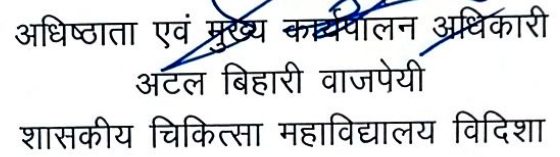 अधिष्ठाता एवं मुख्य कार्यपालन अधिकारी
अटल बिहारी वाजपेयी
शासकीय चिकित्सा महाविद्यालय विदिशा